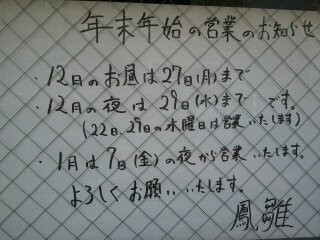 年末年始の営業のお知らせ
・12日のお昼は27日(月)まで
・12月の夜は29日(水)まで です。
(22日、29日の水曜日は営業いたします)
・1月は7日(金)の夜から営業いたします。
よろしくお願いいたします。
鳳雛